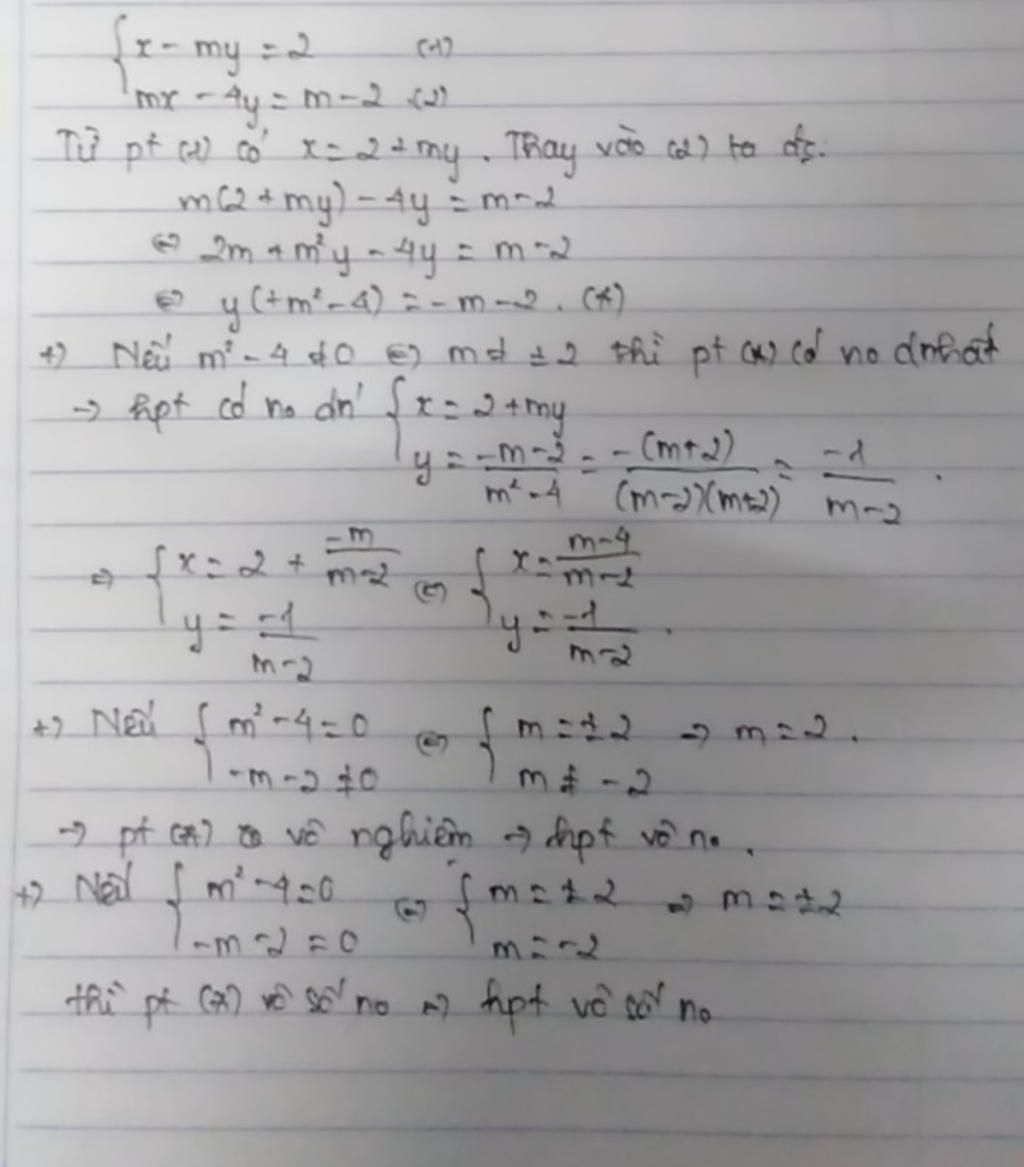 { x - my = 2 (1)
mx - 4y = m - 2 (2)
Từ pt (1) có x = 2 + my . Thay vào (2) ta đc:
m(2 + my) - 4y = m - 2
⇔ 2m + m²y - 4y = m - 2
⇔ y(+m² - 4) = -m - 2 . (*)
+) Nếu m² - 4 ≠ 0 ⇔ m ≠ ± 2 thì pt (*) có no dnhất
→ hpt có no dn' { x = 2 + my
y = \frac{-m-2}{m²-4} = \frac{-(m+2)}{(m-2)(m+2)} = \frac{-1}{m-2} .
⇒ { x = 2 + \frac{-m}{m-2} ⇔ { x = \frac{m-4}{m-2}
y = \frac{-1}{m-2} y = \frac{-1}{m-2} .
+) Nếu { m² - 4 = 0 ⇔ { m = ± 2 ⇒ m = 2 .
-m - 2 ≠ 0 m ≠ - 2
→ pt (*) vô nghiệm → hpt vô no .
+) Nếu { m² - 4 = 0 ⇔ { m = ± 2 ⇒ m = ± 2
-m - 2 = 0 m = - 2
thì pt (*) vô số no ⇒ hpt vô số no